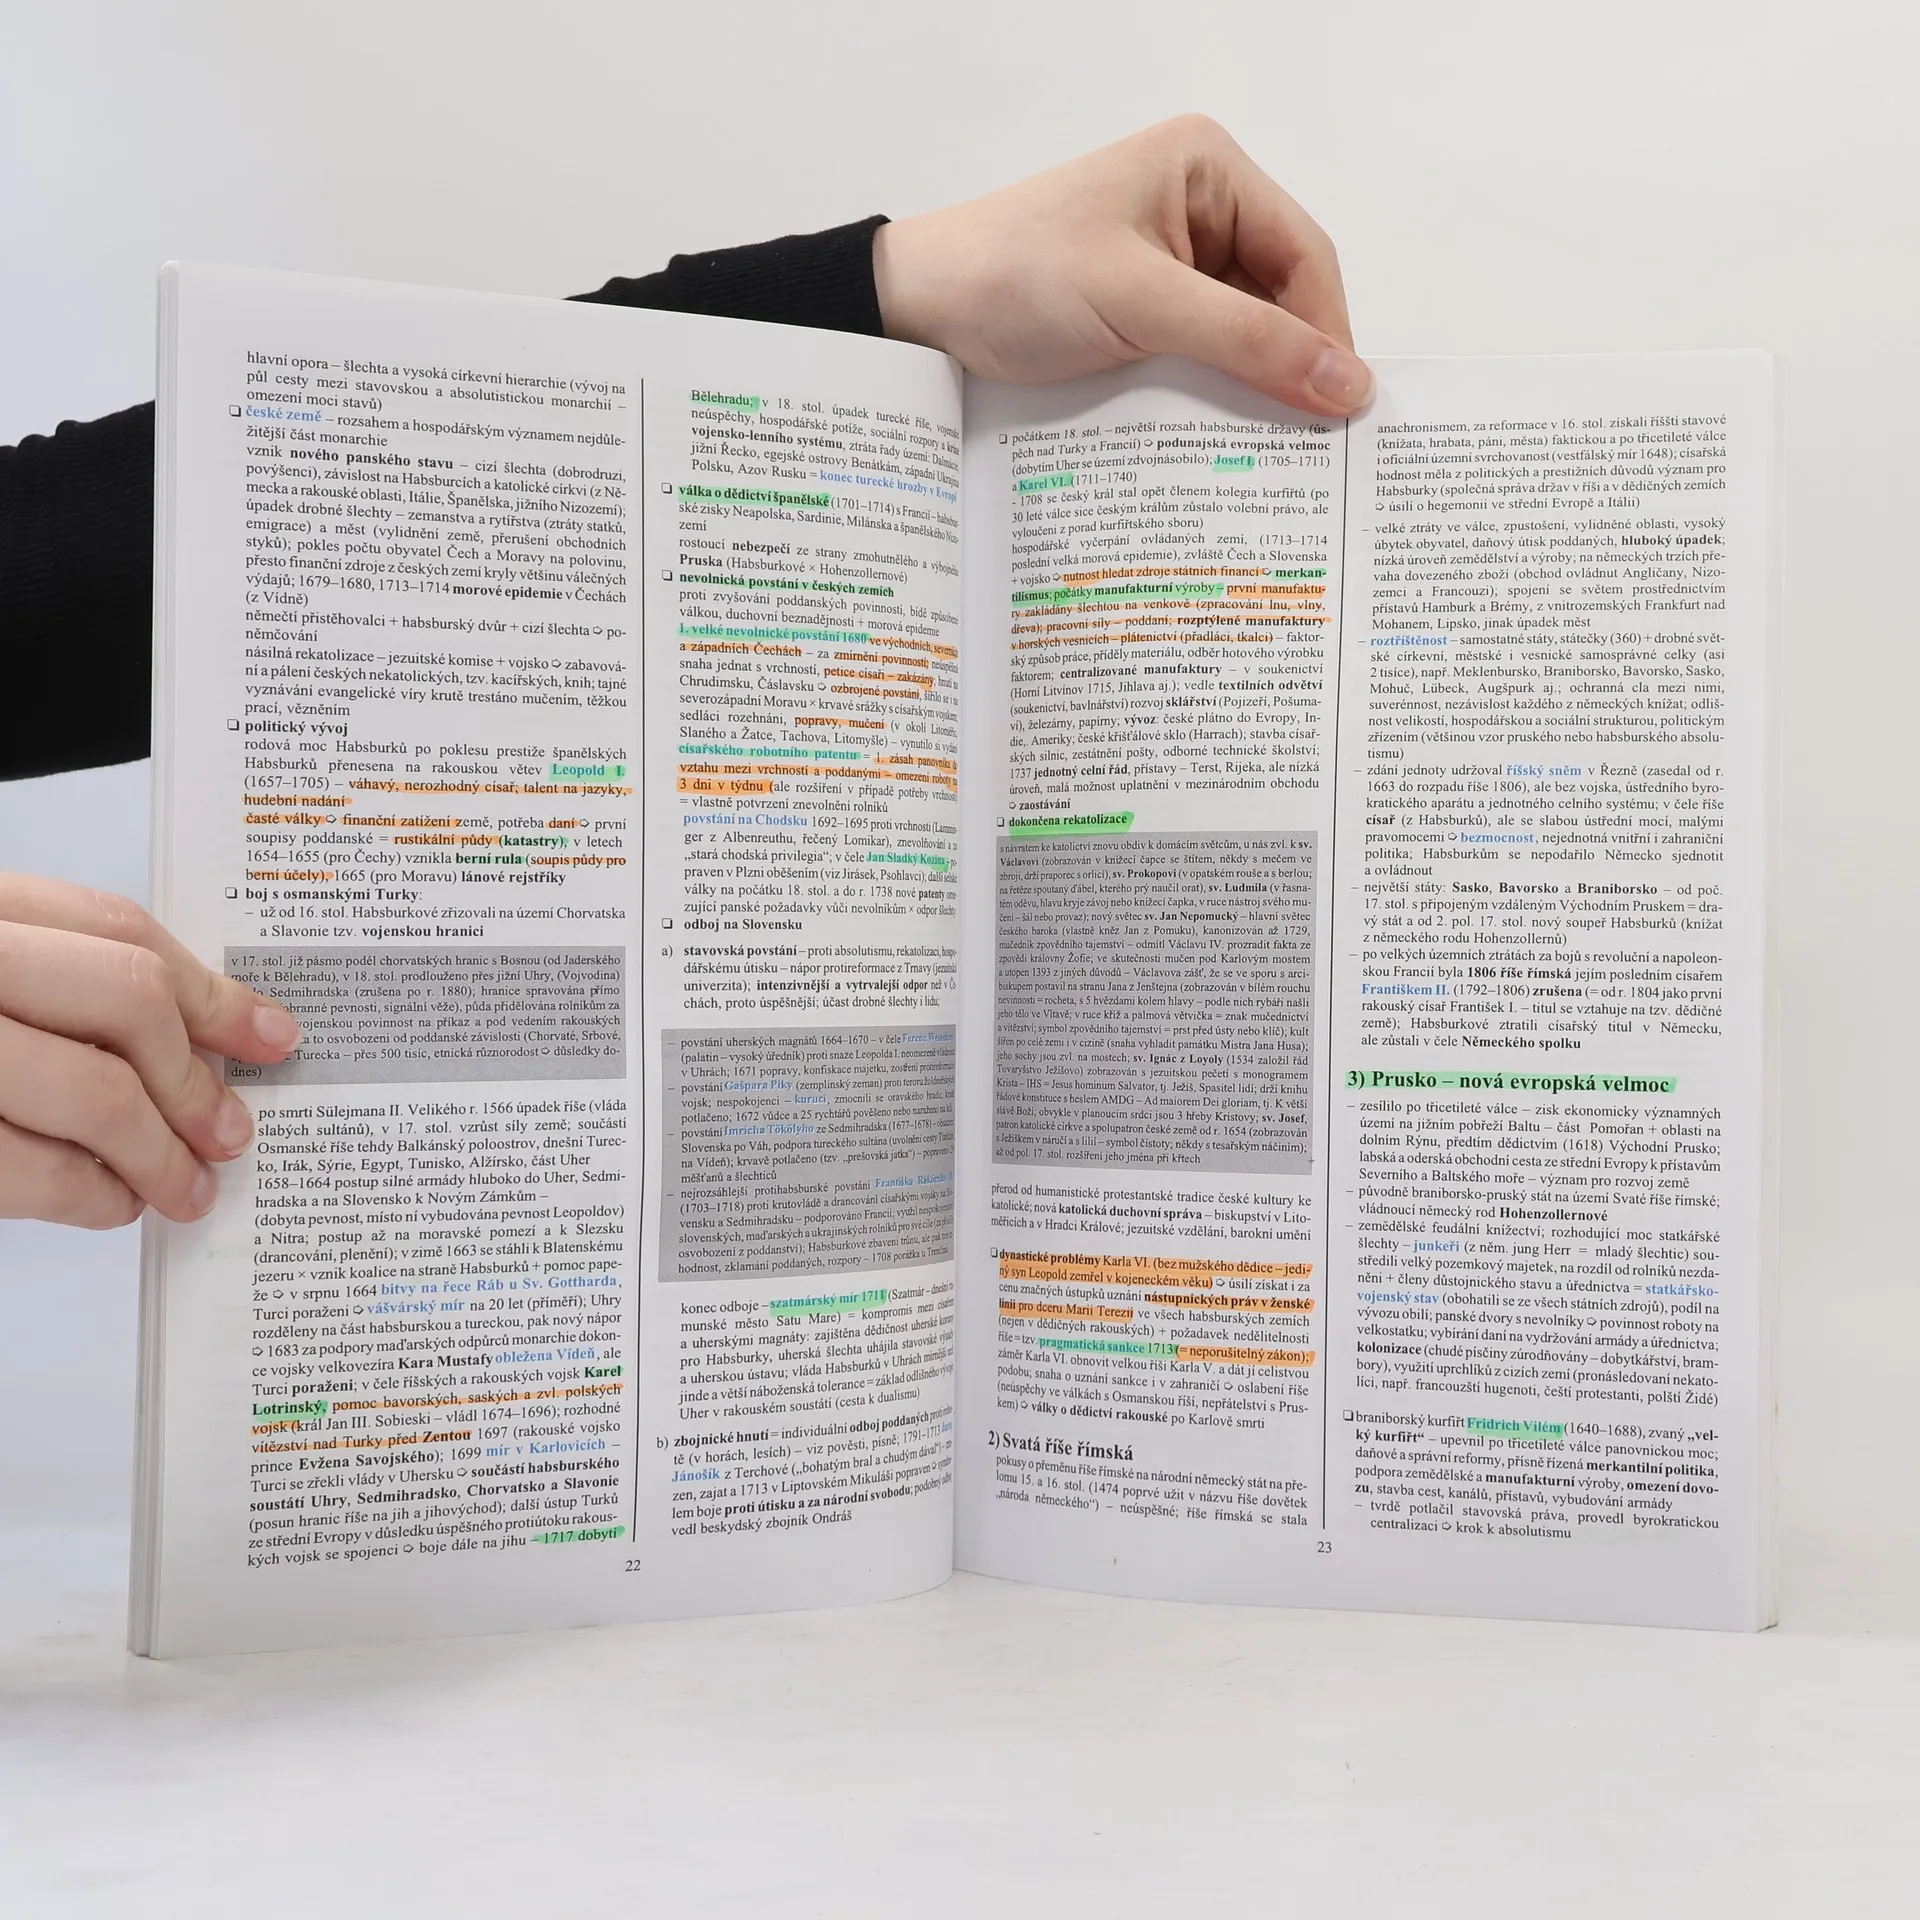 hlavní opora – šlechta a vysoká církevní hierarchie (vývoj na
půl cesty mezi stavovskou a absolutistickou monarchií –
omezení moci stavů)
❏ české země – rozsahem a hospodářským významem nejdůle-
žitější část monarchie
vznik nového panského stavu – cizí šlechta (dobrodruzi,
povýšenci), závislost na Habsburcích a katolické církvi (z Ně-
mecka a rakouské oblasti, Itálie, Španělska, jižního Nizozemí);
úpadek drobné šlechty – zemanstva a rytířstva (ztráty statků,
emigrace) a měst (vylidnění země, přerušení obchodních
styků); pokles počtu obyvatel Čech a Moravy na polovinu,
přesto finanční zdroje z českých zemí kryly většinu válečných
výdajů; 1679–1680, 1713–1714 morové epidemie v Čechách
(z Vídně)
němečtí přistěhovalci + habsburský dvůr + cizí šlechta ➩ po-
němčování
násilná rekatolizace – jezuitské komise + vojsko ➩ zabavová-
ní a pálení českých nekatolických, tzv. kacířských, knih; tajné
vyznávání evangelické víry krutě trestáno mučením, těžkou
prací, vězněním
❏ politický vývoj
rodová moc Habsburků po poklesu prestiže španělských
Habsburků přenesena na rakouskou větev Leopold I.
(1657–1705) – váhavý, nerozhodný císař; talent na jazyky,
hudební nadání
časté války ➩ finanční zatížení země, potřeba daní ➩ první
soupisy poddanské = rustikální půdy (katastry), v letech
1654–1655 (pro Čechy) vznikla berní rula (soupis půdy pro
berní účely), 1665 (pro Moravu) lánové rejstříky
❏ boj s osmanskými Turky:
– už od 16. stol. Habsburkové zřizovali na území Chorvatska
a Slavonie tzv. vojenskou hranici
v 17. stol. již pásmo podél chorvatských hranic s Bosnou (od Jaderského
moře k Bělehradu), v 18. stol. prodlouženo přes jižní Uhry, (Vojvodina)
Sedmihradska (zrušena po r. 1880); hranice spravována přímo
obranné pevnosti, signální věže), půda přidělována rolníkům za
vojenskou povinnost na příkaz a pod vedením rakouských
a to osvobozeni od poddanské závislosti (Chorvaté, Srbové,
z Turecka – přes 500 tisíc, etnická různorodost ➩ důsledky do-
dnes)
po smrti Sülejmana II. Velikého r. 1566 úpadek říše (vláda
slabých sultánů), v 17. stol. vzrůst síly země; součástí
Osmanské říše tehdy Balkánský poloostrov, dnešní Turec-
ko, Irák, Sýrie, Egypt, Tunisko, Alžírsko, část Uher
1658–1664 postup silné armády hluboko do Uher, Sedmi-
hradska a na Slovensko k Novým Zámkům –
(dobyta pevnost, místo ní vybudována pevnost Leopoldov)
a Nitra; postup až na moravské pomezí a k Slezsku
(drancování, plenění); v zimě 1663 se stáhli k Blatenskému
jezeru × vznik koalice na straně Habsburků + pomoc pape-
že ➩ v srpnu 1664 bitvy na řece Ráb u Sv. Gottharda,
Turci poraženi ➩ vášvárský mír na 20 let (příměří); Uhry
rozděleny na část habsburskou a tureckou, pak nový nápor
➩ 1683 za podpory maďarských odpůrců monarchie dokon-
ce vojsky velkovezíra Kara Mustafy obležena Vídeň, ale
Turci poraženi; v čele říšských a rakouských vojsk Karel
Lotrinský, pomoc bavorských, saských a zvl. polských
vojsk (král Jan III. Sobieski – vládl 1674–1696); rozhodné
vítězství nad Turky před Zentou 1697 (rakouské vojsko
prince Evžena Savojského); 1699 mír v Karlovicích –
Turci se zřekli vlády v Uhersku ➩ součástí habsburského
soustátí Uhry, Sedmihradsko, Chorvatsko a Slavonie
(posun hranic říše na jih a jihovýchod); další ústup Turků
ze střední Evropy v důsledku úspěšného protiútoku rakous-
kých vojsk se spojenci ➩ boje dále na jihu – 1717 dobytí
Bělehradu; v 18. stol. úpadek turecké říše, vojenské
neúspěchy, hospodářské potíže, sociální rozpory a krize
vojensko-lenního systému, ztráta řady území: Dalmácie,
jižní Řecko, egejské ostrovy Benátkám, západní Ukrajina
Polsku, Azov Rusku = konec turecké hrozby v Evropě
❏ válka o dědictví španělské (1701–1714) s Francií – habsbur-
ské zisky Neapolska, Sardinie, Milánska a španělského Nizo-
zemí
rostoucí nebezpečí ze strany zmohutnělého a výbojného
Pruska (Habsburkové × Hohenzollernové)
❏ nevolnická povstání v českých zemích
proti zvyšování poddanských povinností, bídě způsobené
válkou, duchovní beznadějnosti + morová epidemie
1. velké nevolnické povstání 1680 ve východních, severních
a západních Čechách – za zmírnění povinností; neúspěšná
snaha jednat s vrchností, petice císaři – zakázány; hnutí na
Chrudimsku, Čáslavsku ➩ ozbrojené povstání, šířilo se i na
severozápadní Moravu × krvavé srážky s císařským vojskem;
sedláci rozehnáni, popravy, mučení (v okolí Litoměřic,
Slaného a Žatce, Tachova, Litomyšle) – vynutilo si vydání
císařského robotního patentu = 1. zásah panovníka do
vztahu mezi vrchností a poddanými – omezení roboty na
3 dni v týdnu (ale rozšíření v případě potřeby vrchnosti)
= vlastně potvrzení znevolnění rolníků
povstání na Chodsku 1692–1695 proti vrchnosti (Lammin-
ger z Albenreuthu, řečený Lomikar), znevolňování a za
„stará chodská privilegia“; v čele Jan Sladký Kozina – po-
praven v Plzni oběšením (viz Jirásek, Psohlavci); další selské
války na počátku 18. stol. a do r. 1738 nové patenty ome-
zující panské požadavky vůči nevolníkům × odpor šlechty
❏ odboj na Slovensku
a) stavovská povstání – proti absolutismu, rekatolizaci, hospo-
dářskému útisku – nápor protireformace z Trnavy (jezuitská
univerzita); intenzivnější a vytrvalejší odpor než v Če-
chách, proto úspěšnější; účast drobné šlechty i lidu;
– povstání uherských magnátů 1664–1670 – v čele Ferenc
(palatin – vysoký úředník) proti snaze Leopolda I. neomezeně vládnout
v Uhrách; 1671 popravy, konfiskace majetku, zostření protireformace
– povstání Gašpara Piky (zemplínský zeman) proti teroru žoldnéřských
vojsk; nespokojenci – kuruci, zmocnili se oravského hradu,
potlačeno; 1672 vůdce a 25 rychtářů pověšeno nebo naraženo na kůl
– povstání Imricha Tökölyho ze Sedmihradska (1677–1678) – obsazeno
Slovensko po Váh, podpora tureckého sultána (uvolnění cesty Turkům
na Vídeň); krvavě potlačeno (tzv. „prešovská jatka“) – popraveno
měšťanů a šlechticů
– nejrozsáhlejší protihabsburské povstání Františka Rákócziho II.
(1703–1718) proti krutovládě a drancování císařskými vojáky na Slo-
vensku a Sedmihradsku – podporováno Francií; využil nespokojenosti
slovenských, maďarských a ukrajinských rolníků pro své cíle (za příslib
osvobození z poddanství); Habsburkové zbaveni trůnu, ale pak
hodnost, zklamání poddaných, rozpory – 1708 porážka u Trenčína
konec odboje – szatmárský mír 1711 (Szatmár – dnešní ru-
munské město Satu Mare) = kompromis mezi císařem
a uherskými magnáty: zajištěna dědičnost uherské koruny
pro Habsburky, uherská šlechta uhájila stavovské výsady
a uherskou ústavu; vláda Habsburků v Uhrách mírnější než
jinde a větší náboženská tolerance = základ odlišného vývoje
Uher v rakouském soustátí (cesta k dualismu)
b) zbojnické hnutí = individuální odboj poddaných proti robo-
tě (v horách, lesích) – viz pověsti, písně; 1791–1713 Juraj
Jánošík z Terchové („bohatým bral a chudým dával“) –
zen, zajat a 1713 v Liptovském Mikuláši popraven ➩ symbo-
lem boje proti útisku a za národní svobodu; podobný odboj
vedl beskydský zbojník Ondráš
22
❏ počátkem 18. stol. – největší rozsah habsburské državy (ús-
pěch nad Turky a Francií) ➩ podunajská evropská velmoc
(dobytím Uher se území zdvojnásobilo); Josef I. (1705–1711)
a Karel VI. (1711–1740)
- 1708 se český král stal opět členem kolegia kurfiřtů (po
30 leté válce sice českým králům zůstalo volební právo, ale
vyloučeni z porad kurfiřtského sboru)
hospodářské vyčerpání ovládaných zemí, (1713–1714
poslední velká morová epidemie), zvláště Čech a Slovenska
+ vojsko ➩ nutnost hledat zdroje státních financí ➩ merkan-
tilismus; počátky manufakturní výroby – první manufaktu-
ry zakládány šlechtou na venkově (zpracování lnu, vlny,
dřeva); pracovní síly – poddaní; rozptýlené manufaktury
v horských vesnicích – plátenictví (přadláci, tkalci) – faktor-
ský způsob práce, příděly materiálu, odběr hotového výrobku
faktorem; centralizované manufaktury – v soukenictví
(Horní Litvínov 1715, Jihlava aj.); vedle textilních odvětví
(soukenictví, bavlnářství) rozvoj sklářství (Pojizeří, Pošuma-
ví), železárny, papírny; vývoz: české plátno do Evropy, In-
die, Ameriky; české křišťálové sklo (Harrach); stavba císař-
ských silnic, zestátnění pošty, odborné technické školství;
1737 jednotný celní řád, přístavy – Terst, Rijeka, ale nízká
úroveň, malá možnost uplatnění v mezinárodním obchodu
➩ zaostávání
❏ dokončena rekatolizace
s návratem ke katolictví znovu obdiv k domácím světcům, u nás zvl. k sv.
Václavovi (zobrazován v knížecí čapce se štítem, někdy s mečem ve
zbroji, drží praporec s orlicí), sv. Prokopovi (v opatském rouše a s berlou;
na řetěze spoutaný ďábel, kterého prý naučil orat), sv. Ludmila (v řasna-
tém oděvu, hlavu kryje závoj nebo knížecí čapka, v ruce nástroj svého mu-
čení – šál nebo provaz); nový světec sv. Jan Nepomucký – hlavní světec
českého baroka (vlastně kněz Jan z Pomuku), kanonizován až 1729,
mučedník zpovědního tajemství – odmítl Václavu IV. prozradit fakta ze
zpovědi královny Žofie; ve skutečnosti mučen pod Karlovým mostem
a utopen 1393 z jiných důvodů – Václavova zášť, že se ve sporu s arci-
biskupem postavil na stranu Jana z Jenštejna (zobrazován v bílém rouchu
nevinnosti = rocheta, s 5 hvězdami kolem hlavy - podle nich rybáři našli
jeho tělo ve Vltavě; v ruce kříž a palmová větvička = znak mučednictví
a vítězství; symbol zpovědního tajemství = prst před ústy nebo klíč); kult
šířen po celé zemi i v cizině (snaha vyhladit památku Mistra Jana Husa);
jeho sochy jsou zvl. na mostech; sv. Ignác z Loyoly (1534 založil řád
Tovaryšstvo Ježíšovo) zobrazován s jezuitskou pečetí s monogramem
Krista – IHS = Jesus hominum Salvator, tj. Ježíš, Spasitel lidí; drží knihu
řádové konstituce s heslem AMDG – Ad maiorem Dei gloriam, tj. K větší
slávě Boží; obvykle v planoucím srdci jsou 3 hřeby Kristovy; sv. Josef,
patron katolické církve a spolupatron české země od r. 1654 (zobrazován
s Ježíškem v náručí a s lilií – symbol čistoty; někdy s tesařským náčiním);
až od pol. 17. stol. rozšíření jeho jména při křtech
přerod od humanistické protestantské tradice české kultury ke
katolické; nová katolická duchovní správa – biskupství v Lito-
měřicích a v Hradci Králové; jezuitské vzdělání, barokní umění
❏ dynastické problémy Karla VI. (bez mužského dědice – jedi-
ný syn Leopold zemřel v kojeneckém věku) ➩ úsilí získat i za
cenu značných ústupků uznání nástupnických práv v ženské
linii pro dceru Marii Terezii ve všech habsburských zemích
(nejen v dědičných rakouských) + požadavek nedělitelnosti
říše = tzv. pragmatická sankce 1713 (= neporušitelný zákon);
záměr Karla VI. obnovit velkou říši Karla V. a dát jí celistvou
podobu; snaha o uznání sankce i v zahraničí ➩ oslabení říše
(neúspěchy ve válkách s Osmanskou říší, nepřátelství s Prus-
kem) ➩ války o dědictví rakouské po Karlově smrti
2) Svatá říše římská
pokusy o přeměnu říše římské na národní německý stát na pře-
lomu 15. a 16. stol. (1474 poprvé užit v názvu říše dovětek
„národa německého“) – neúspěšné; říše římská se stala
anachronismem, za reformace v 16. stol. získali říšští stavové
(knížata, hrabata, páni, města) faktickou a po třicetileté válce
i oficiální územní svrchovanost (vestfálský mír 1648); císařská
hodnost měla z politických a prestižních důvodů význam pro
Habsburky (společná správa držav v říši a v dědičných zemích
➩ úsilí o hegemonii ve střední Evropě a Itálii)
– velké ztráty ve válce, zpustošení, vylidněné oblasti, vysoký
úbytek obyvatel, daňový útisk poddaných, hluboký úpadek;
nízká úroveň zemědělství a výroby; na německých trzích pře-
vaha dovezeného zboží (obchod ovládnut Angličany, Nizo-
zemci a Francouzi); spojení se světem prostřednictvím
přístavů Hamburk a Brémy, z vnitrozemských Frankfurt nad
Mohanem, Lipsko, jinak úpadek měst
– roztříštěnost – samostatné státy, státečky (360) + drobné svět-
ské církevní, městské i vesnické samosprávné celky (asi
2 tisíce), např. Meklenbursko, Braniborsko, Bavorsko, Sasko,
Mohuč, Lübeck, Augšpurk aj.; ochranná cla mezi nimi,
suverénnost, nezávislost každého z německých knížat; odliš-
nost velikostí, hospodářskou a sociální strukturou, politickým
zřízením (většinou vzor pruského nebo habsburského absolu-
tismu)
– zdání jednoty udržoval říšský sněm v Řezně (zasedal od r.
1663 do rozpadu říše 1806), ale bez vojska, ústředního byro-
kratického aparátu a jednotného celního systému; v čele říše
císař (z Habsburků), ale se slabou ústřední mocí, malými
pravomocemi ➩ bezmocnost, nejednotná vnitřní i zahraniční
politika; Habsburkům se nepodařilo Německo sjednotit
a ovládnout
– největší státy: Sasko, Bavorsko a Braniborsko – od poč.
17. stol. s připojeným vzdáleným Východním Pruskem = dra-
vý stát a od 2. pol. 17. stol. nový soupeř Habsburků (knížat
z německého rodu Hohenzollernů)
– po velkých územních ztrátách za bojů s revoluční a napoleon-
skou Francií byla 1806 říše římská jejím posledním císařem
Františkem II. (1792–1806) zrušena (= od r. 1804 jako první
rakouský císař František I. – titul se vztahuje na tzv. dědičné
země); Habsburkové ztratili císařský titul v Německu,
ale zůstali v čele Německého spolku
3) Prusko – nová evropská velmoc
– zesílilo po třicetileté válce – zisk ekonomicky významných
území na jižním pobřeží Baltu – část Pomořan + oblasti na
dolním Rýnu, předtím dědictvím (1618) Východní Prusko;
labská a oderská obchodní cesta ze střední Evropy k přístavům
Severního a Baltského moře – význam pro rozvoj země
– původně braniborsko-pruský stát na území Svaté říše římské;
vládnoucí německý rod Hohenzollernové
– zemědělské feudální knížectví; rozhodující moc statkářské
šlechty – junkeři (z něm. jung Herr = mladý šlechtic) sou-
středili velký pozemkový majetek, na rozdíl od rolníků nezda-
něni + členy důstojnického stavu a úřednictva = statkářsko-
vojenský stav (obohatili se ze všech státních zdrojů), podíl na
vývozu obilí; panské dvory s nevolníky ➩ povinnost roboty na
velkostatku; vybírání daní na vydržování armády a úřednictva;
kolonizace (chudé písčiny zúrodňovány – dobytkářství, bram-
bory), využití uprchlíků z cizích zemí (pronásledovaní nekato-
líci, např. francouzští hugenoti, čeští protestanti, polští Židé)
❏ braniborský kurfiřt Fridrich Vilém (1640–1688), zvaný „vel-
ký kurfiřt“ – upevnil po třicetileté válce panovnickou moc;
daňové a správní reformy, přísně řízená merkantilní politika,
podpora zemědělské a manufakturní výroby, omezení dovo-
zu, stavba cest, kanálů, přístavů, vybudování armády
– tvrdě potlačil stavovská práva, provedl byrokratickou
centralizaci ➩ krok k absolutismu
23